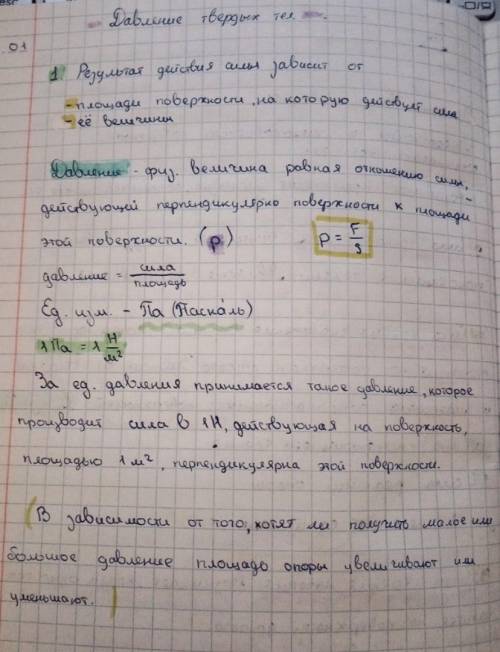 Давление твердых тел.
01
1 Результат действия силы зависит от
- площади поверхности, на которую действует сила
- её величины
Давление - физ. величина равная отношению силы,
действующей перпендикулярно поверхности к площади
этой поверхности. (p) p = F/S
давление = сила/площадь
Ед. изм. - Па (Паскаль)
1 Па = 1 Н/м²
За ед. давления принимается такое давление, которое
производит сила в 1Н, действующая на поверхность,
площадью 1 м², перпендикулярна этой поверхности.
(В зависимости от того, хотят ли получить малое или
большое давление площадь опоры увеличивают или
уменьшают.)